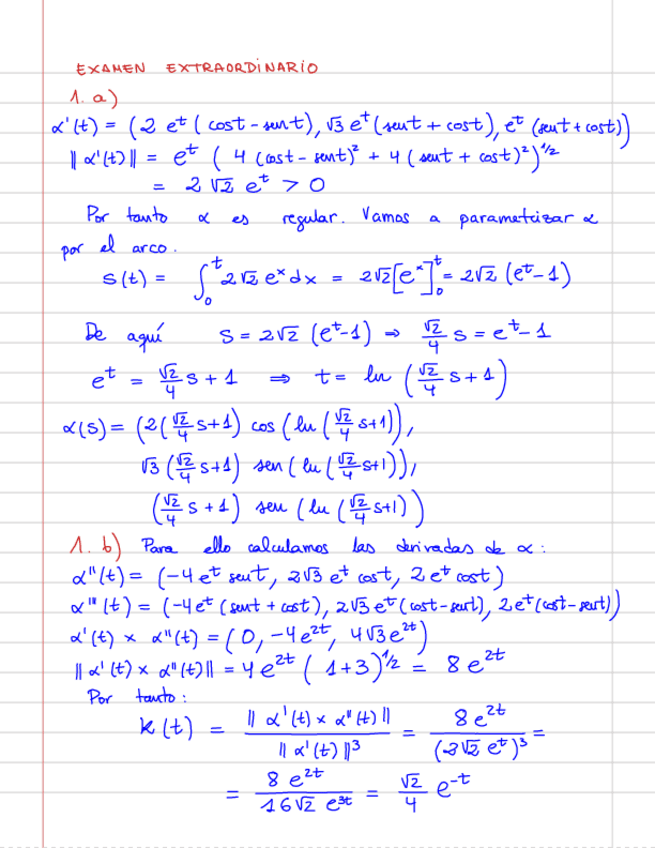 EXAMEN EXTRAORDINARIO
1. a)
α'(t) = (2 e^t (cost - sent), √3 e^t (sent + cost), e^t (sent + cost))
‖α'(t)‖ = e^t (4 (cost - sent)² + 4 (sent + cost)²)^1/2
= 2√2 e^t > 0
Por tanto α es regular. Vamos a parametrizar α
por el arco.
s(t) = ∫₀^t 2√2 e^x dx = 2√2 [e^x]₀^t = 2√2 (e^t - 1)
De aquí s = 2√2 (e^t - 1) ⇒ √2/4 s = e^t - 1
e^t = √2/4 s + 1 ⇒ t = ln (√2/4 s + 1)
α(s) = (2(√2/4 s+1) cos (ln (√2/4 s+1)),
√3 (√2/4 s+1) sen (ln (√2/4 s+1)),
(√2/4 s + 1) sen (ln (√2/4 s+1))
1. b) Para ello calculamos las derivadas de α:
α''(t) = (-4 e^t sent, 2√3 e^t cost, 2 e^t cost)
α'''(t) = (-4e^t (sent + cost), 2√3 e^t (cost - sent), 2e^t (cost - sent))
α'(t) × α''(t) = (0, -4e^2t, 4√3 e^2t)
‖α'(t) × α''(t)‖ = 4e^2t (1+3)^1/2 = 8 e^2t
Por tanto:
k(t) = ‖α'(t) × α''(t)‖ / ‖α'(t)‖³ = 8 e^2t / (2√2 e^t)³ =
= 8 e^2t / 16√2 e^3t = √2/4 e^-t